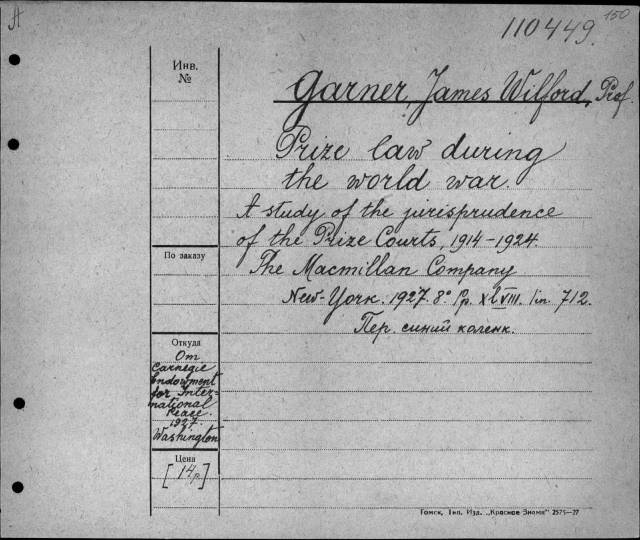 A
150
110449.
Инв.
№
Garner, James Wilford, Prof
Prize law during
the world war.
A study of the jurisprudence
of the Prize Courts, 1914-1924.
По заказу
The Macmillan Company
New-York. 1927. 8° Pp. XLVIII. 712.
Пер. синий коленк.
Откуда
От
Carnegie
Endowment
for Inter-
national
Peace.
1927.
Washington
Цена
[14р.]
Томск, Тип. Изд. „Красное Знамя" 2575—27